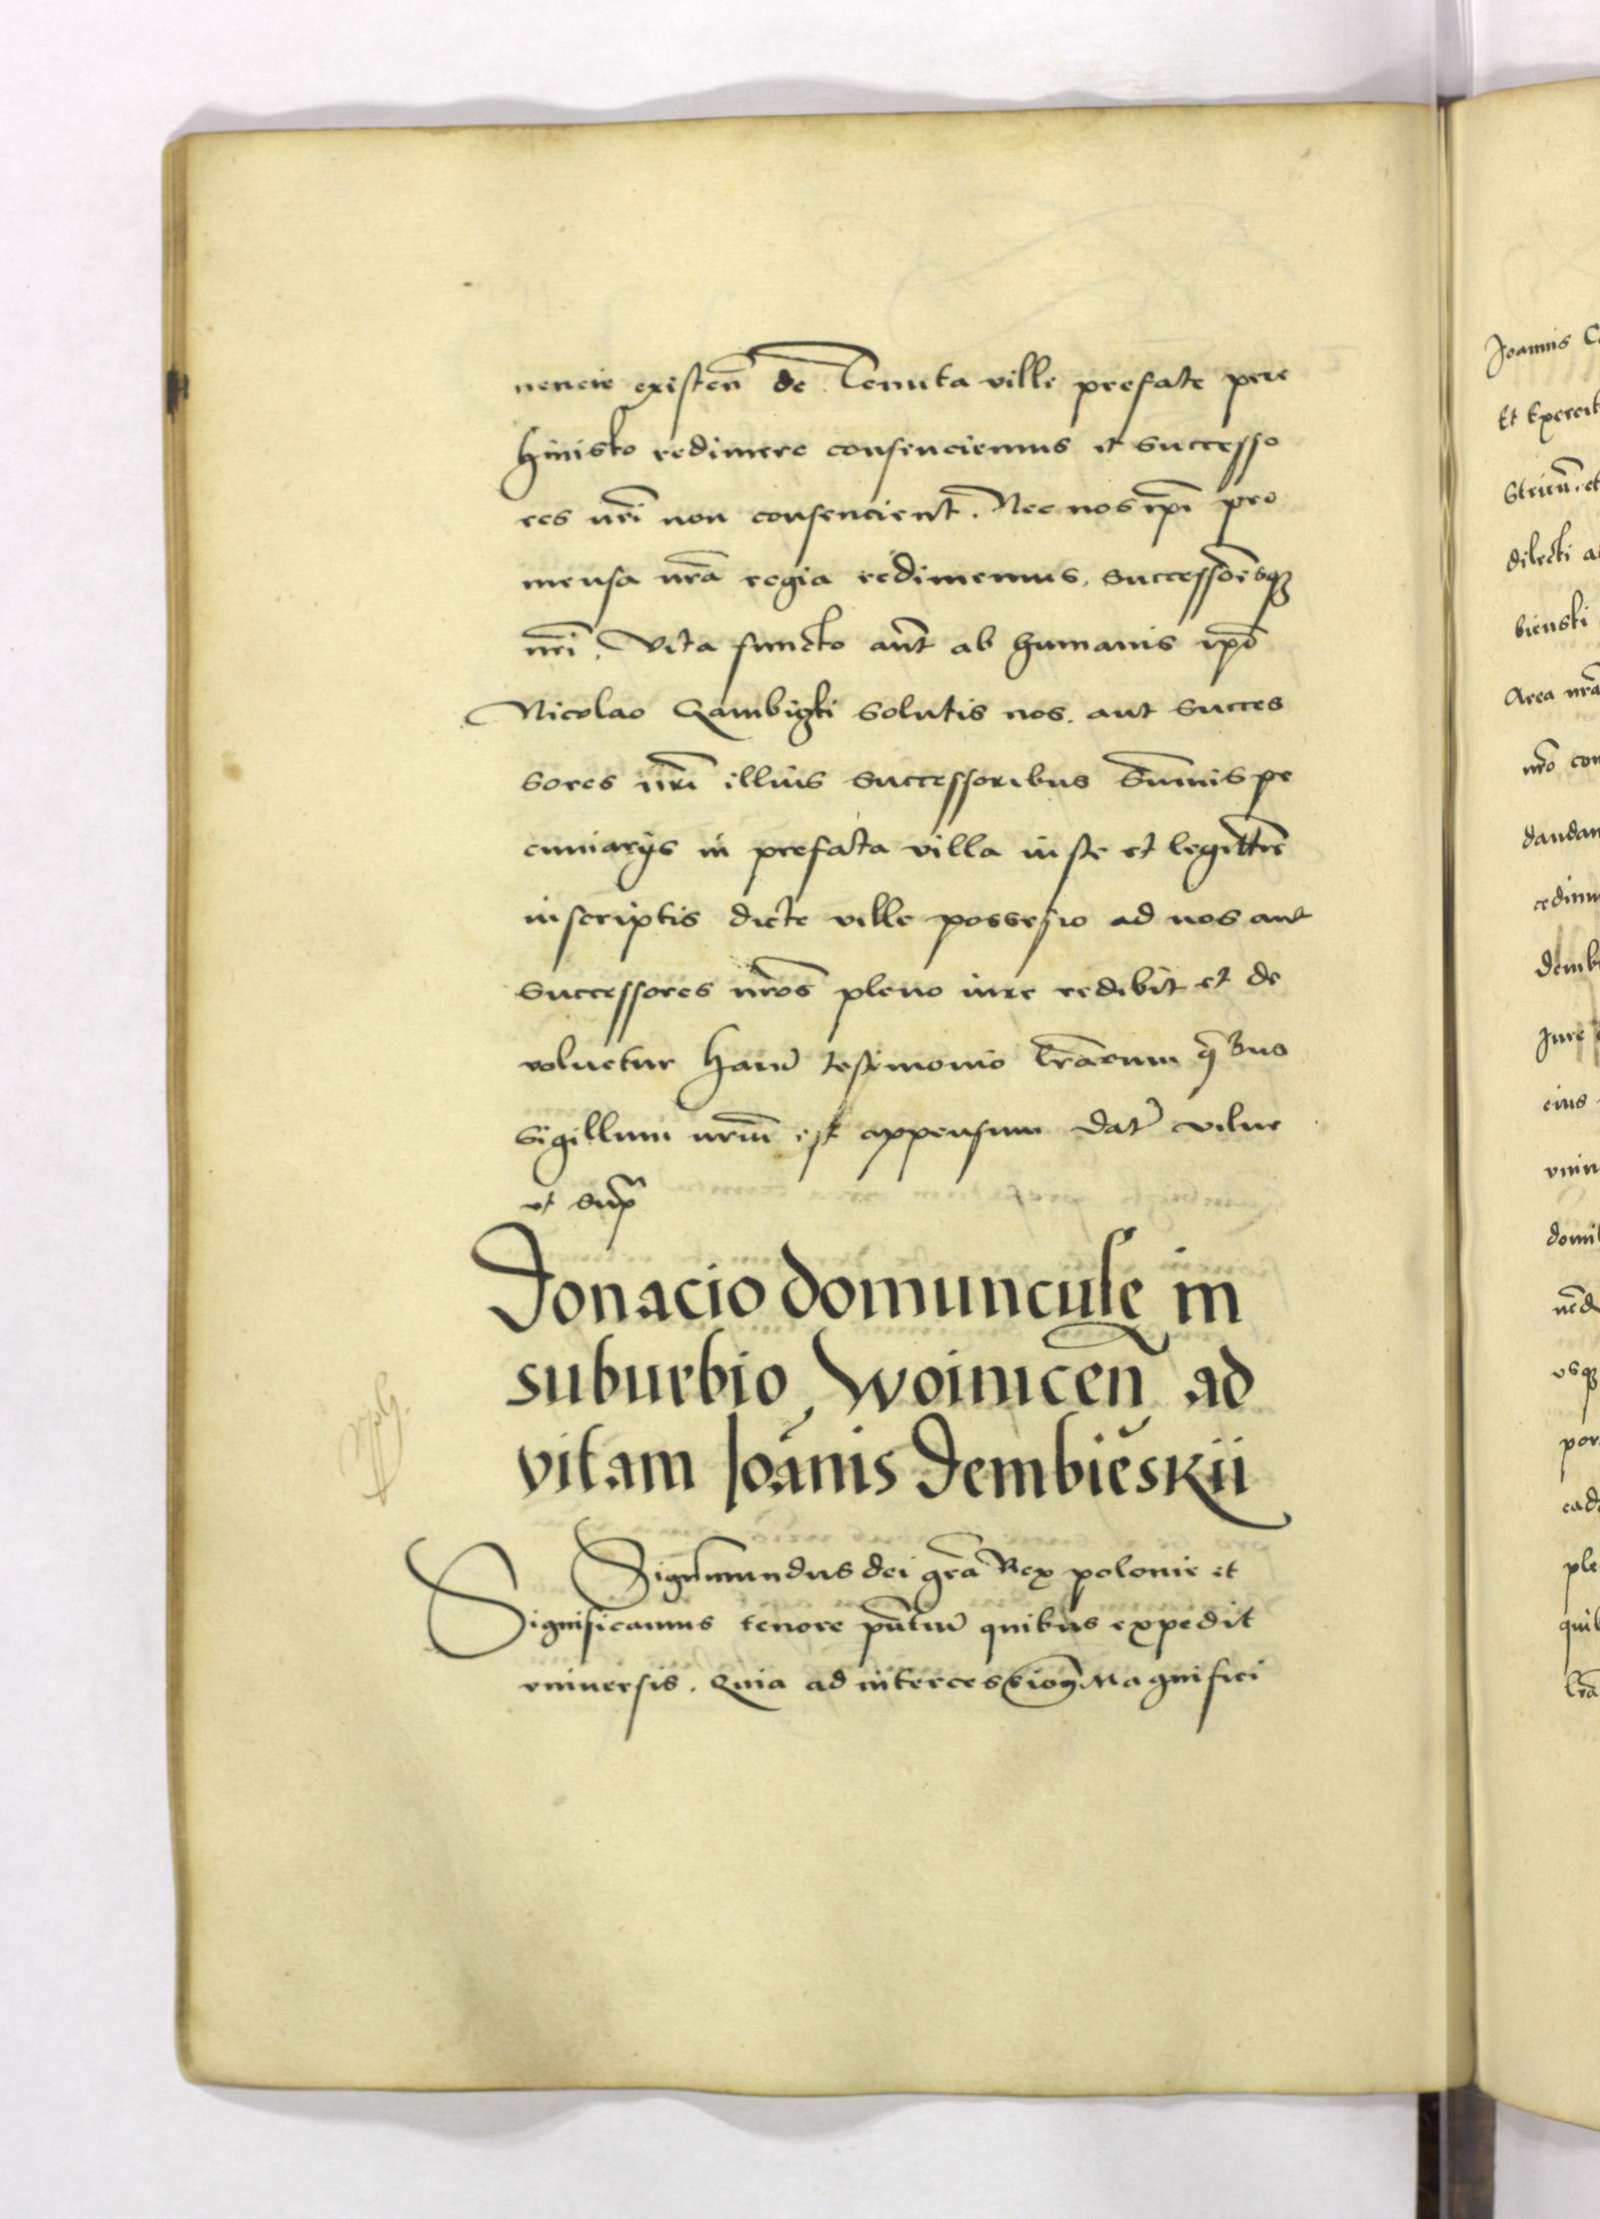 nencie existeñ de Tenuta ville prefate pere
hinisko redimere consenciemus et successo
res nr̃i non consencient. Nec nos ip̃i pro
mensa nr̃a regia redimemus, successores̃q
nr̃i. Vita functo aut̃ ab humanis ip̃o
Nicolao Qambigki Solutis nos. aut Succes
sores nr̃i illius Successoribus Sum̃is pe
cuniarÿs in prefata villa iuste et legittĩe
inscriptis dicte ville possesio ad nos aut
Successores nr̃os pleno iure redibit et de
voluetur Haruʒ testimonio lr̃arum q̃bus
Sigillum nr̃um est appensum Datʒ vilne
ut sup̃
Donacio domuncule in
suburbio Woiniceñ ad
vitam Joãnis Dembiẽskii
Sigismundus dei gr̃a Rex polonie et
Significamus tenore pñtiuʒ quibus expedit
vniuersis. Quia ad intercessionẽ Magnifici
Joannis
Et Exercit
dilecti
bienski
Area nr̃a
nr̃o con
dandam
Jure
eius